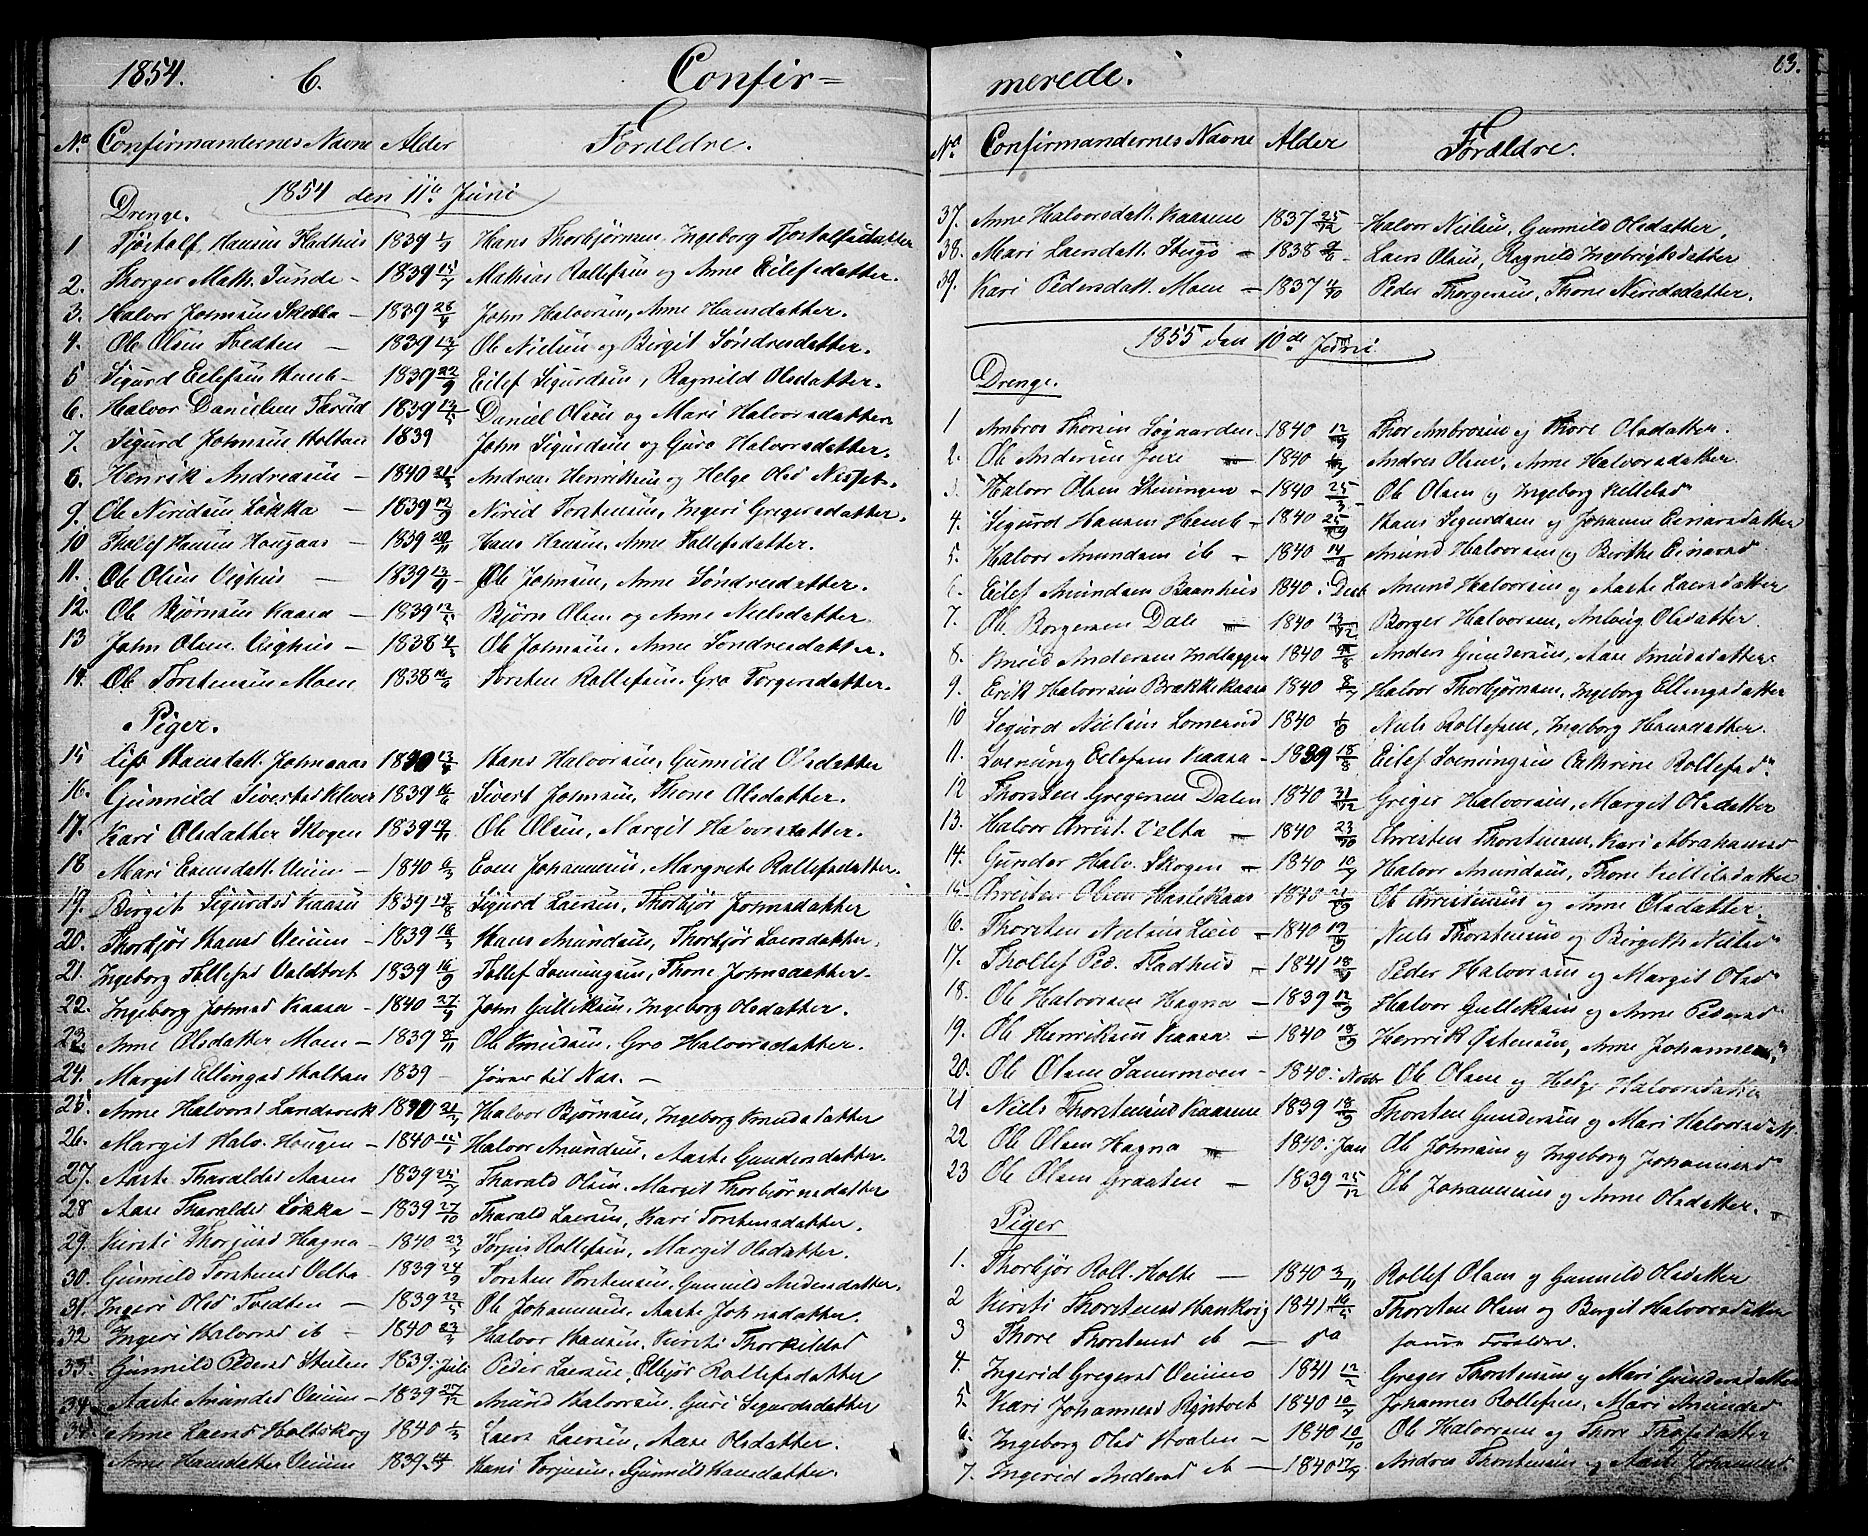 1854. 6. Confir=
No. Confirmandernes Navne Alder Forældre.
1854 den 11te Juni
Drenge.
1 Tjøstolf Hansen Fladhus 1839 1/9 Hans Thorbjørnsen, Ingeborg Tjøstolfsdatter
2. Thorger Math. Tunde - 1839 15/7 Mathias Rollefsen og Anne Eilefsdatter.
3. Halvor Johnsen Skobba - 1839 26/4 John Halvorsen, Anne Hansdatter.
4. Ole Olsen Tvedten - 1839 13/7 Ole Nielsen og Birgit Søndresdatter.
5 Sigurd Eilefsen Hemb - 1839 22/9 Eilef Sigurdsen, Ragnild Olsdatter.
6. Halvor Danielsen Tærud 1839 13/5 Daniel Olsen og Mari Halvorsdatter
7. Sigurd Johnsen Holtan 1839 John Sigurdsen og Guro Halvorsdatter.
8. Henrik Andreasen - 1840 21/5 Andreas Henriksen og Helge Olsd
9. Ole Niridsen Løkka - 1839 12/9 Nirid Torstensen, Ingeri Gregersdatter.
10 Thalef Hansen Hougaas - 1839 20/11 Hans Hansen, Anne Tollefsdatter.
11. Ole Olsen Vighus - 1839 13/11 - Ole Johnsen, Anne Søndresdatter.
12. Ole Bjørnsen Kaasa - 1839 12/5 Bjørn Olsen og Anne Nielsdatter
13 John Olsen Vighus - 1838 4/3 Ole Johnsen, Anne Søndresdatter.
14. Ole Torstensen Moen 1838 Torsten Rollefsen, Gro Torgersdatter.
Piger.
15 Hansdatt. Johnsaas Hans Halvorsen, Gunnild Olsdatter
16. Gunnild Sivertsd Klever 1839 16/6 Sivert Johnsen, Thone Olsdatter.
17. Kari Olsdatter Skogen 1839 19/11 Ole Olsen, Margit Halvorsdatter.
18 Mari Evensdatt. Veium - 1840 6/3 Even Johannesen, Margrete Rollefsdatter.
19. Birgit Sigurdsd Kaasa 1839 Sigurd Laersen, Thorbjør Johnsdatter
20. Thorbjør Hansd Veium - 1839 16/3 Hans Amundsen, Thorbjør Laersdatter.
21. Ingeborg Tollefsd Valdtvet 1839 16/9 Tollef Lvenungsen, Thone Johnsdatter.
22. Ingeborg Johnsd Kaasa - 1840 27/9 John Gulliksen, Ingeborg Olsdatter.
23. Anne Olsdatter Moen - 1839 8/11 Ole Knudsen, Gro Halvorsdatter.
24. Margit Ellingsd Holtan 1839 - Hører til Næs. -
25. Anne Halvorsd Landsverk Halvor Bjørnsen, Ingeborg Knudsdatter
26. Margit Halv. Hougen - 1840 Halvor Amundsen, Aaste Gundersdatter.
27. Aaste Tharaldsd Aasen 1839 Tharald Olsen, Margit Thorbjørnsdatter
28 Aase Tharaldsd Løkka - 1839 27/10 Tharald Laersen, Kari Torstensdatter.
29. Kirsti Thorjusd Hagna - 1840 23/7 Torjus Rollefsen, Margit Olsdatter.
30. Gunnild Torstensd Velta 1839 24/9 Torsten Torstensen, Gunnild Andersdatter.
31. Ingeri Olsd Tvedten - 1839 22/5 Ole Johannesen, Aaste Johnsdatter.
32 Ingeri Halvorsd ib - 1840 23/3 Halvor Hansen, Kirsti Thorkildsd
33. Gunnild Pedersd 1839. Juli Peder Laersen, Elbjør Rollefsdatter
34. Aaste Amundsd Veium - 1839 27/12 Amund Halvorsen, Guri Sigurdsdatter
35. Anne Laersd Holtskog 1840 1/3 Laers Laersen, Aase Olsdatter.
Anne Hansdatter Veium 1839 Hans Torjusen, Gunnild Hansdatter.
merede. 63.
No. Confirmandernes Navne Alder Forældre.
37. Anne Halvorsdatt. Kaasene 1837 25/12 Halvor Nielsen, Gunnild Olsdatter.
38. Mari Laersdatt. - 1838 Laers Olsen, Ragnild Ingebrigtsdatter
39. Kari Pedersdatt. Moen - 1837 Peder Thorgersen, Thone Niridsdatter.
1855 den 10de Juni
Drenge.
1 Ambros Thorsen Løgaarden - 1840 12/9 Thor Ambrosen og Thore Olsdatter.
2. Ole Andersen Juve - 1840 Andres Olsen, Anne Halvorsdatter
3. Halvor Olsen - 1840 25/3 Ole Olsen og Ingeborg Killilsd
4. Sigurd Hansen Hemb - 1840 Hans Sigurdsen og Johanne Einarsdatter
5. Halvor Amundsen ib - 1840 Amund Halvorsen og Birthe Einarsd
6. Eilef Amundsen Baanhus 1840. Decb Amund Halvorsen og Aaste Laersdatter
7. Ole Borgersen Dale - 1840 13/12 Borger Halvorsen, Anlaug Olsdatter
8. Knud Andersen Indlaggen 1840 Anders Gundersen, Aase Knudsdatter
9. Erik Halvorsen Brækkekaasa 1840 8/7 Halvor Thorbjørnsen, Ingeborg Ellingsdatter
10 Sigurd Nielsen Lomerud 1840 1/9 Niels Rollefsen, Ingeborg Hansdatter.
11. Lvenung Eilefsen Kaasa - 1839 18/8 Eilef Lvenungsen Cathrine Rollefsd.
12 Thorsten Gregersen Dalen 1840 31/12 Greger Halvorsen, Margit Olsdatter
13. Halvor Christ. Velta - 1840 23/10 Christen Thorstensen, Kari Abrahamsd
14. Gunder Halv. Skogen - 1840 10/7 Halvor Amundsen, Thone Killilsdatter
15. Christen Olsen Haslekaas 1840 21/9 Ole Christensen og Anne Olsdatter
16. Thorsten Nielsen Lie - 1840 Niels Thorstensen og Birgitte Nielsd
17. Thollef Ped. Fladhus - 1841 Peder Halvorsen og Margit Olsd
18. Ole Halvorsen Hagna - 1839 12/9 Halvor Gulliksen og Anne Pedersd
19. Ole Henriksen Kaasa - 1840 18/9 Henrik Østensen, Anne Johannesd.
20. Ole Olsen - 1840. Novbr Ole Olsen og Helge Halvorsdatter
21 Niels Thorstensen Kaasene 1839 18/9 Thorsten Gundersen og Mari Halvorsdatt.
22 Ole Olsen Hagna - 1840. Jan Ole Johnsen og Ingeborg Johannesd
23 Ole Olsen Graaten - 1839 25/12 Ole Johannesen og Anne Olsdatter.
Piger
1. Thorbjør Roll. Holte - 1840 3/11 Rollef Olsen og Gunnild Olsdatter
2 Kirsti Thorstensd Haukvig 1841 16/5 Thorsten Olsen og Bergit Halvorsdatter
3 Thore Thorstensd ib - do samme Forældre.
4. Ingerid Gregersd Veium 1841 12/2 Greger Thorstensen og Mari Gundersdatter
5. Kari Johannesd 1840 10/7 Johannes Rollefsen, Mari Amundsd
6. Ingeborg Olsd Hvalen - 1840 10/10 Ole Halvorsen og Thore
7. Ingerid Andersd ib - 1840 17/9 Andres Thorstensen og Aaste Johannesd